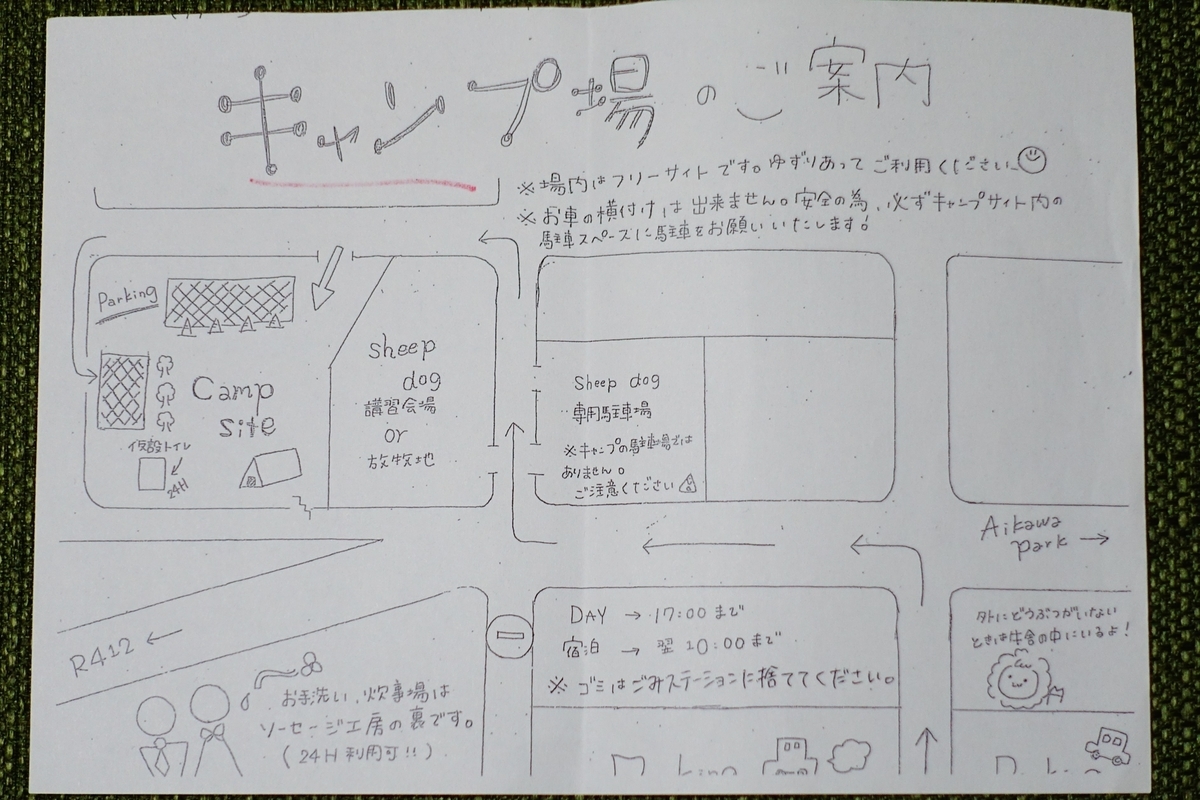 キャンプ場のご案内
※場内はフリーサイトです。ゆずりあってご利用ください
※お車の横付けは出来ません。安全の為、必ずキャンプサイト内の
駐車スペースに駐車をお願いいたします!
Parking
Camp
site
仮設トイレ
24H
sheep
dog
講習会場
or
放牧地
Sheep dog
専用駐車場
※キャンプの駐車場では
ありません。
ご注意ください
Aikawa
park →
R412 ←
DAY → 17:00まで
宿泊 → 翌10:00まで
※ ゴミはごみステーションに捨ててください。
外にどうぶつがいない
ときは牛舎の中にいるよ!
お手洗い、炊事場は
ソーセージ工房の裏です。
(24H利用可!!)